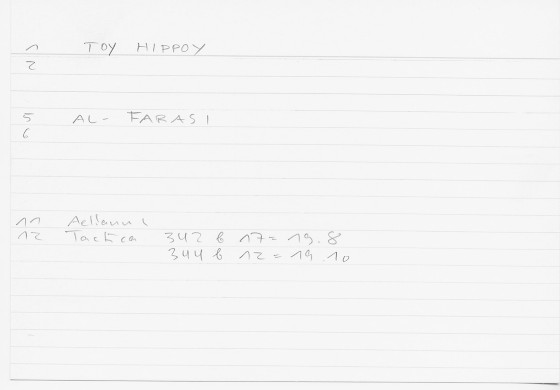 1 TOY HIPPOY
2
5 AL-FARASI
6
11
12 Tactica 342 b 17 = 19.8
344 b 12 = 19.10